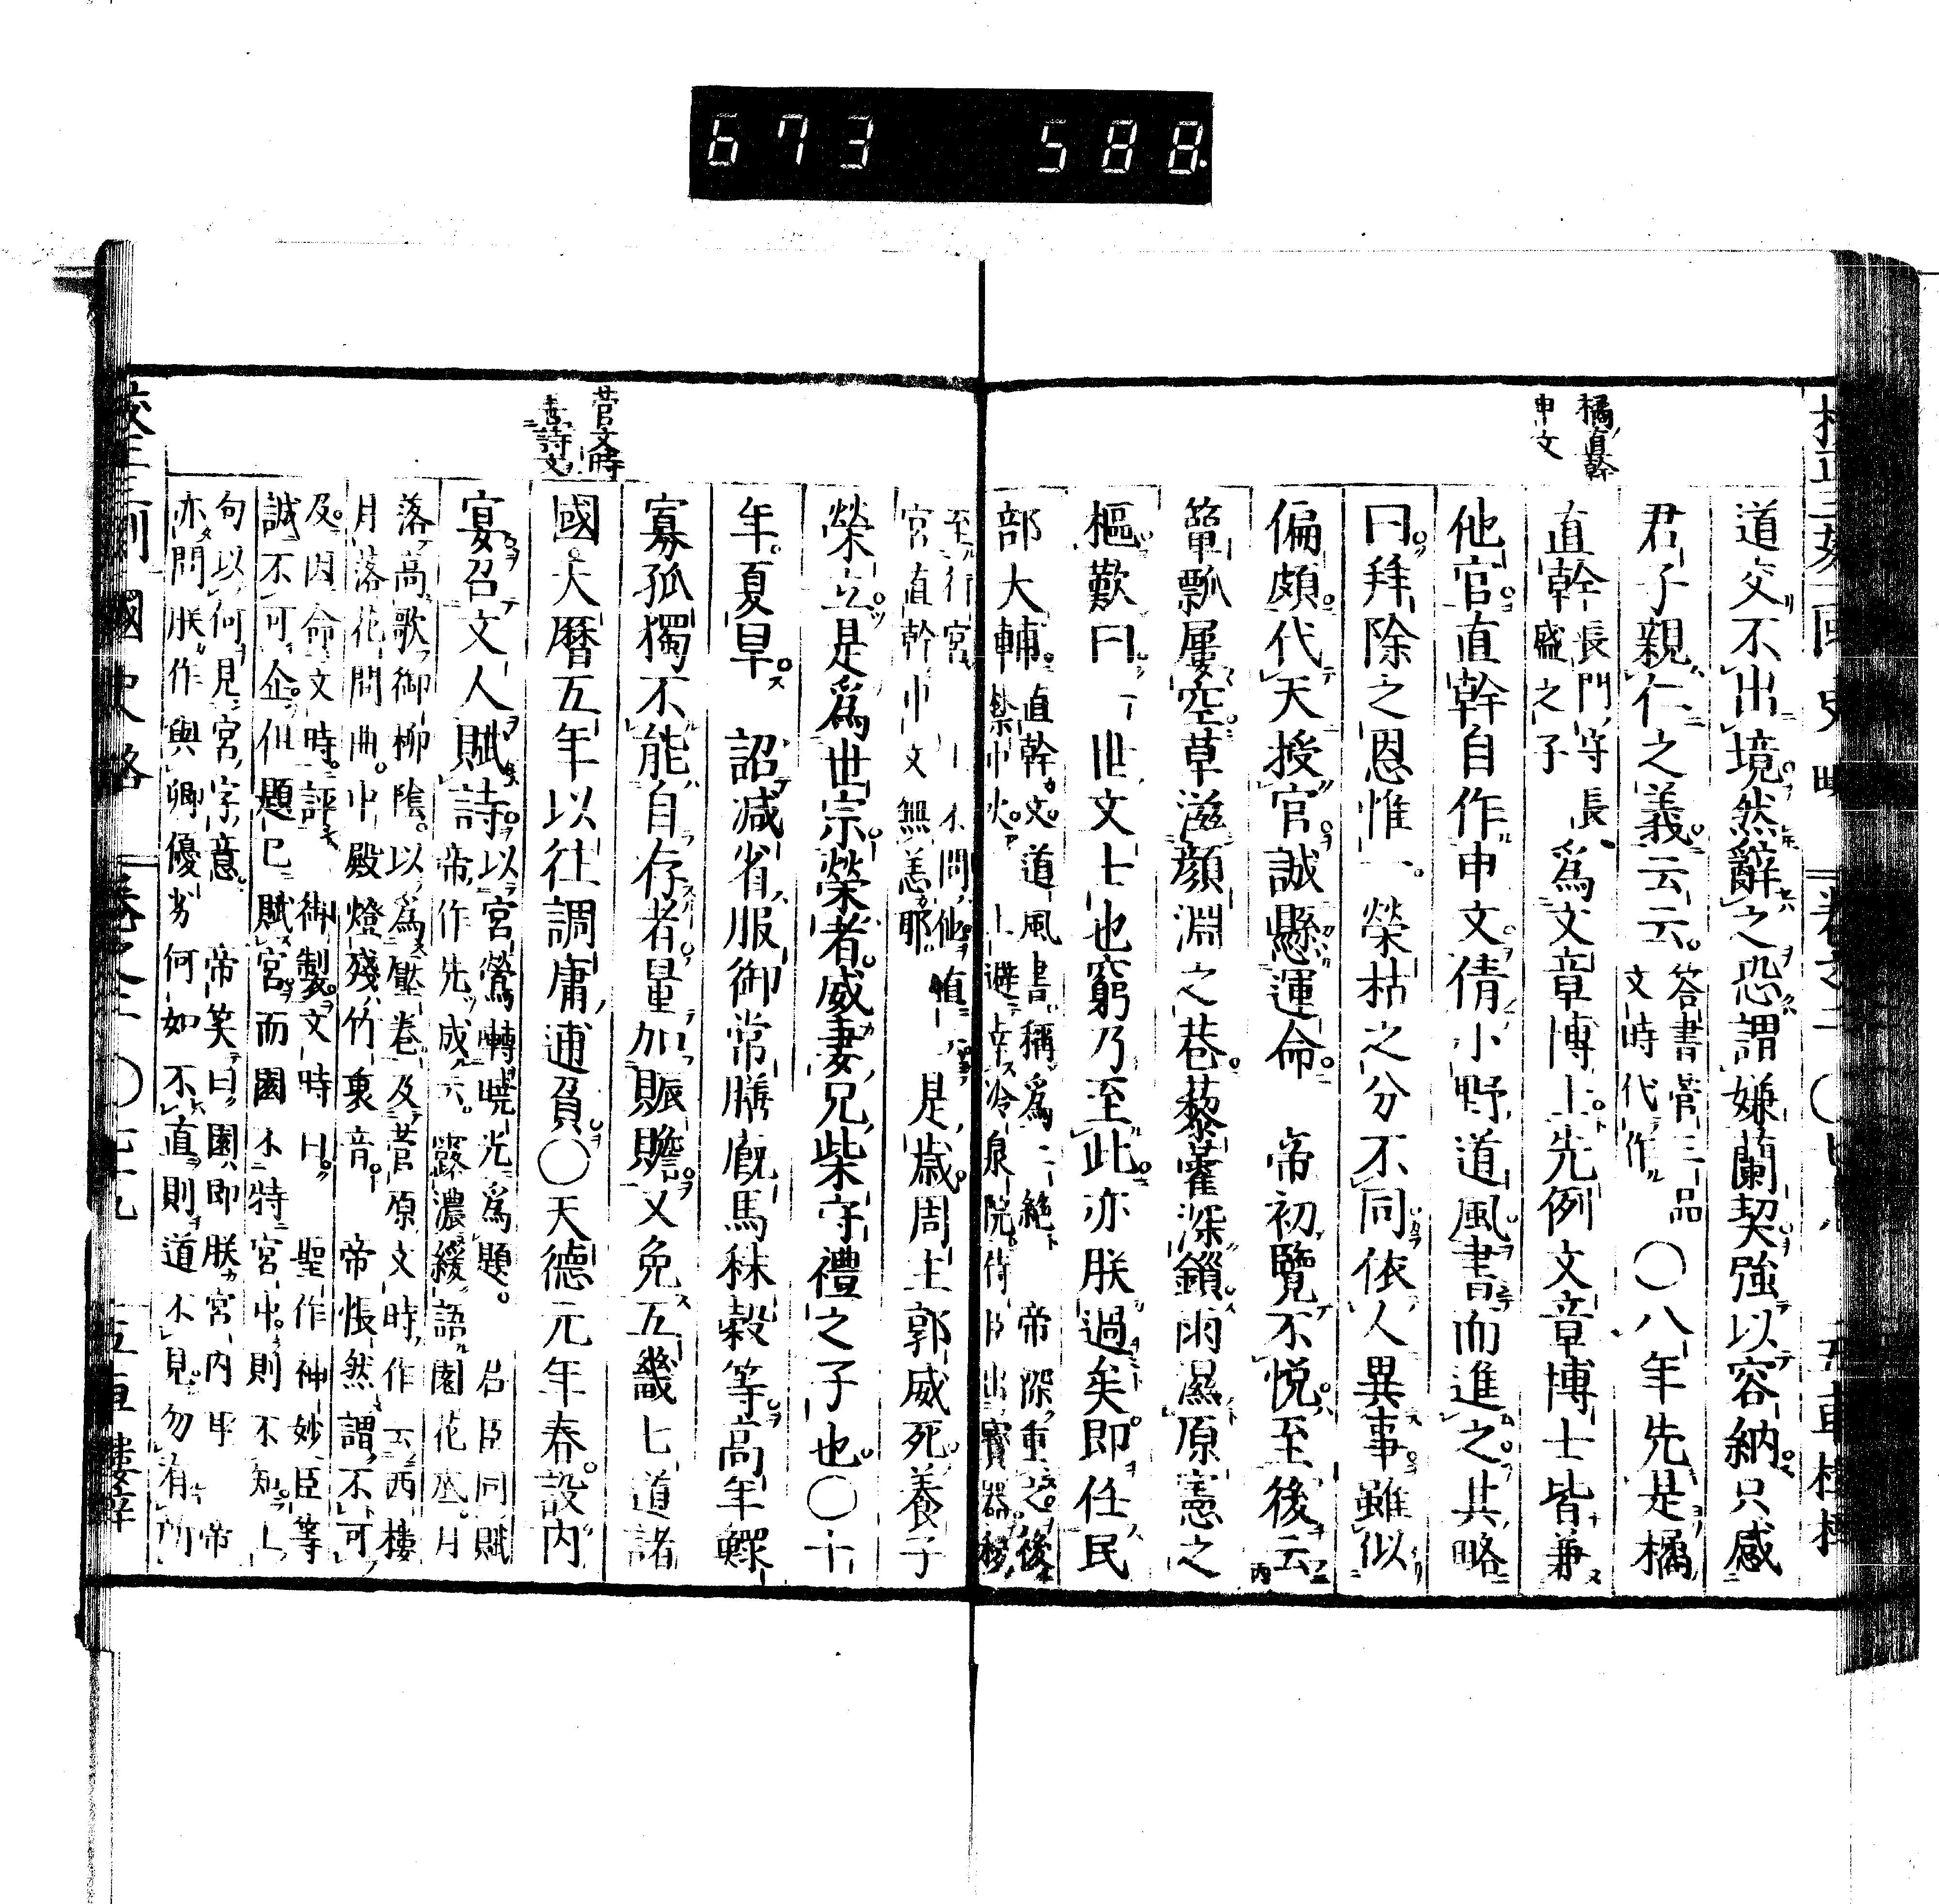 673 588
橘直幹
申文
道交不出境然辭之恐謂嫌蘭契強以容納只感
君子親仁之義云云答書菅三品
文時代作〇八年先是橘
直幹長門守長
盛之子爲文章博士先例文章博士皆兼
他官直幹自作申文倩小野道風書而進之其略
曰拜除之恩惟一榮枯之分不同依人異事雖似
偏頗代天授官誠懸運命 帝初覽不悅至後云
簞瓢屢空草滋顏淵之巷藜藋深鎖雨濕原憲之
樞歎曰 世文士也窮乃至此亦朕過矣即任民
部大輔直幹文道風書稱爲二絕 帝深重之後
禁中火 上避幸冷泉院侍臣出寶器移
至行宮 不問他
宮直幹申文無恙耶 是歲周主郭威死養子
榮立是爲世宗榮者威妻兄柴守禮之子也〇十
年夏旱 詔減省服御常膳廐馬秣穀等高年鰥
寡孤獨不能自存者量加賑贍又免五畿七道諸
國天曆五年以往調庸逋負〇天德元年春設內
菅文時
善詩文
宴召文人賦詩以宮鶯囀曉光爲題 召臣同賦
帝作先成云露濃緩語園花底月
落高歌御柳陰以爲壓卷及菅原文時作云西樓
月落花間曲中殿燈殘竹裏音 帝悵然謂不可
及因命文時評 御製文時曰 聖作神妙臣等
誠不可企但題已賦宮而園不特宮中則不知上
句以何見宮字意 帝笑曰園即朕宮內耳 帝
亦問朕作與卿優劣何如不直則道不見勿有所
國史略 卷之二〇 五車樓梓